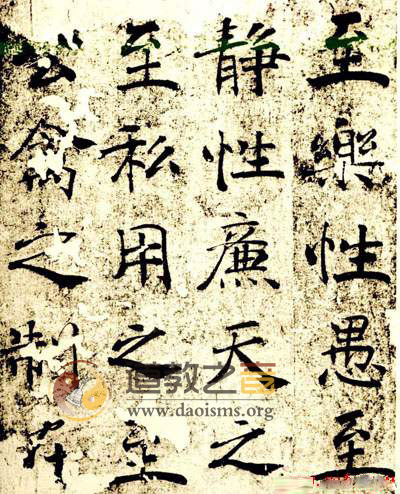 至樂性愚至
静性廉天之
至私用之至
公禽之制在
道教之音
www.daoisms.org